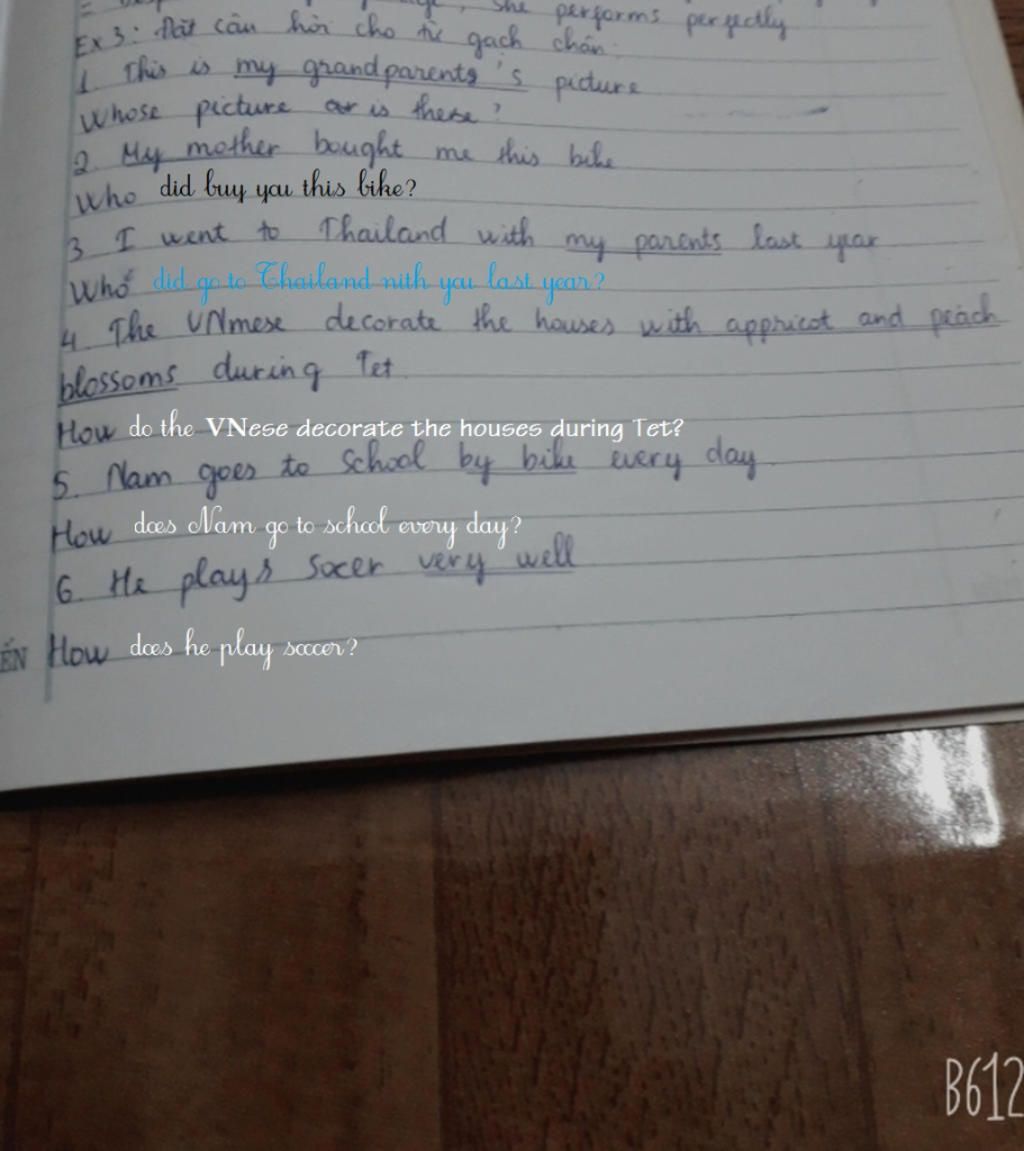 she performs perfectly
Ex 3: Đặt câu hỏi cho từ gạch chân:
1. This is my grandparents's picture
Whose picture is these?
2. My mother bought me this bike
Who did buy you this bike?
3 I went to Thailand with my parents last year
Who did go to Thailand nith you last year?
4 The VNmese decorate the houses with appricot and peach
blossoms during Tet
How do the VNese decorate the houses during Tet?
5. Nam goes to school by bike every day
How does Nam go to school every day?
6. He plays socer very well
ẾN How does he play soccer?
B612